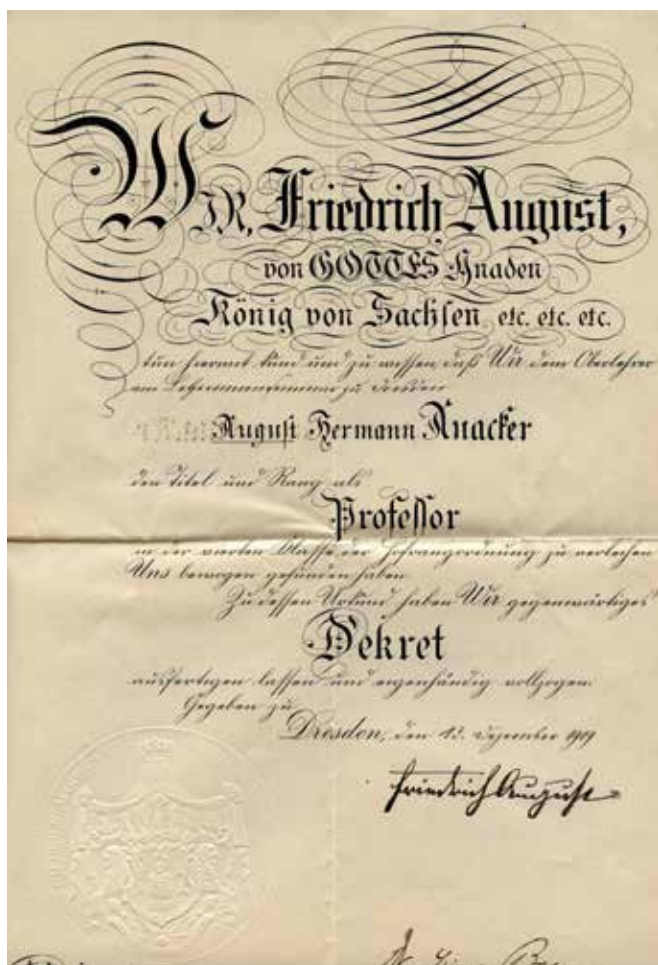 WIR, Friedrich August,
von GOTTES Gnaden
König von Sachsen etc. etc. etc.
tun hiermit kund und zu wissen, daß Wir dem Oberlehrer
am Lehrerinnenseminar zu Dresden
August Hermann Knacker
den Titel und Rang als
Professor
in der vierten Klasse der Hofrangordnung zu verleihen
Uns bewogen gefunden haben.
Zu dessen Urkund haben Wir gegenwärtiges
Dekret
ausfertigen lassen und eigenhändig vollzogen.
Gegeben zu
Dresden, den 13. Dezember
Friedrich August